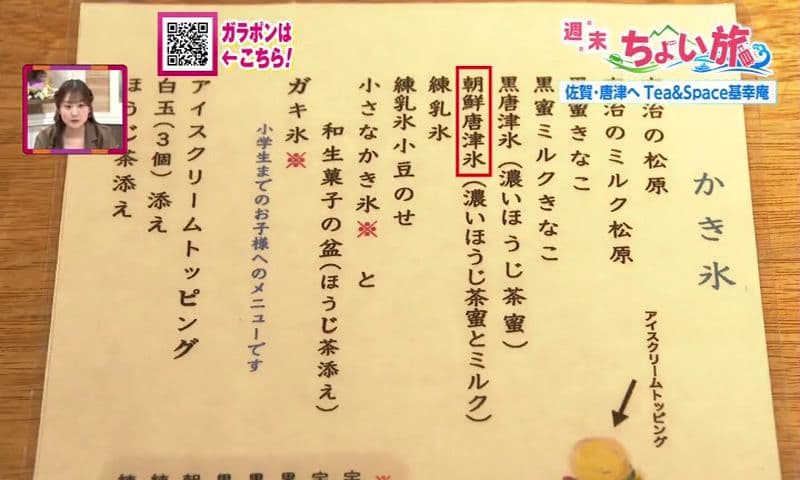 ガラポンは
←こちら!
週末ちょい旅
佐賀・唐津へ Tea&Space基幸庵
かき氷
アイスクリームトッピング
治の松原
治のミルク松原
蜜きなこ
黒蜜ミルクきなこ
黒唐津氷(濃いほうじ茶蜜)
朝鮮唐津氷(濃いほうじ茶蜜とミルク)
練乳氷
練乳氷小豆のせ
小さなかき氷※ と
和生菓子の盆(ほうじ茶添え)
ガキ氷※
小学生までのお子様へのメニューです
アイスクリームトッピング
白玉(3個)添え
ほうじ茶添え